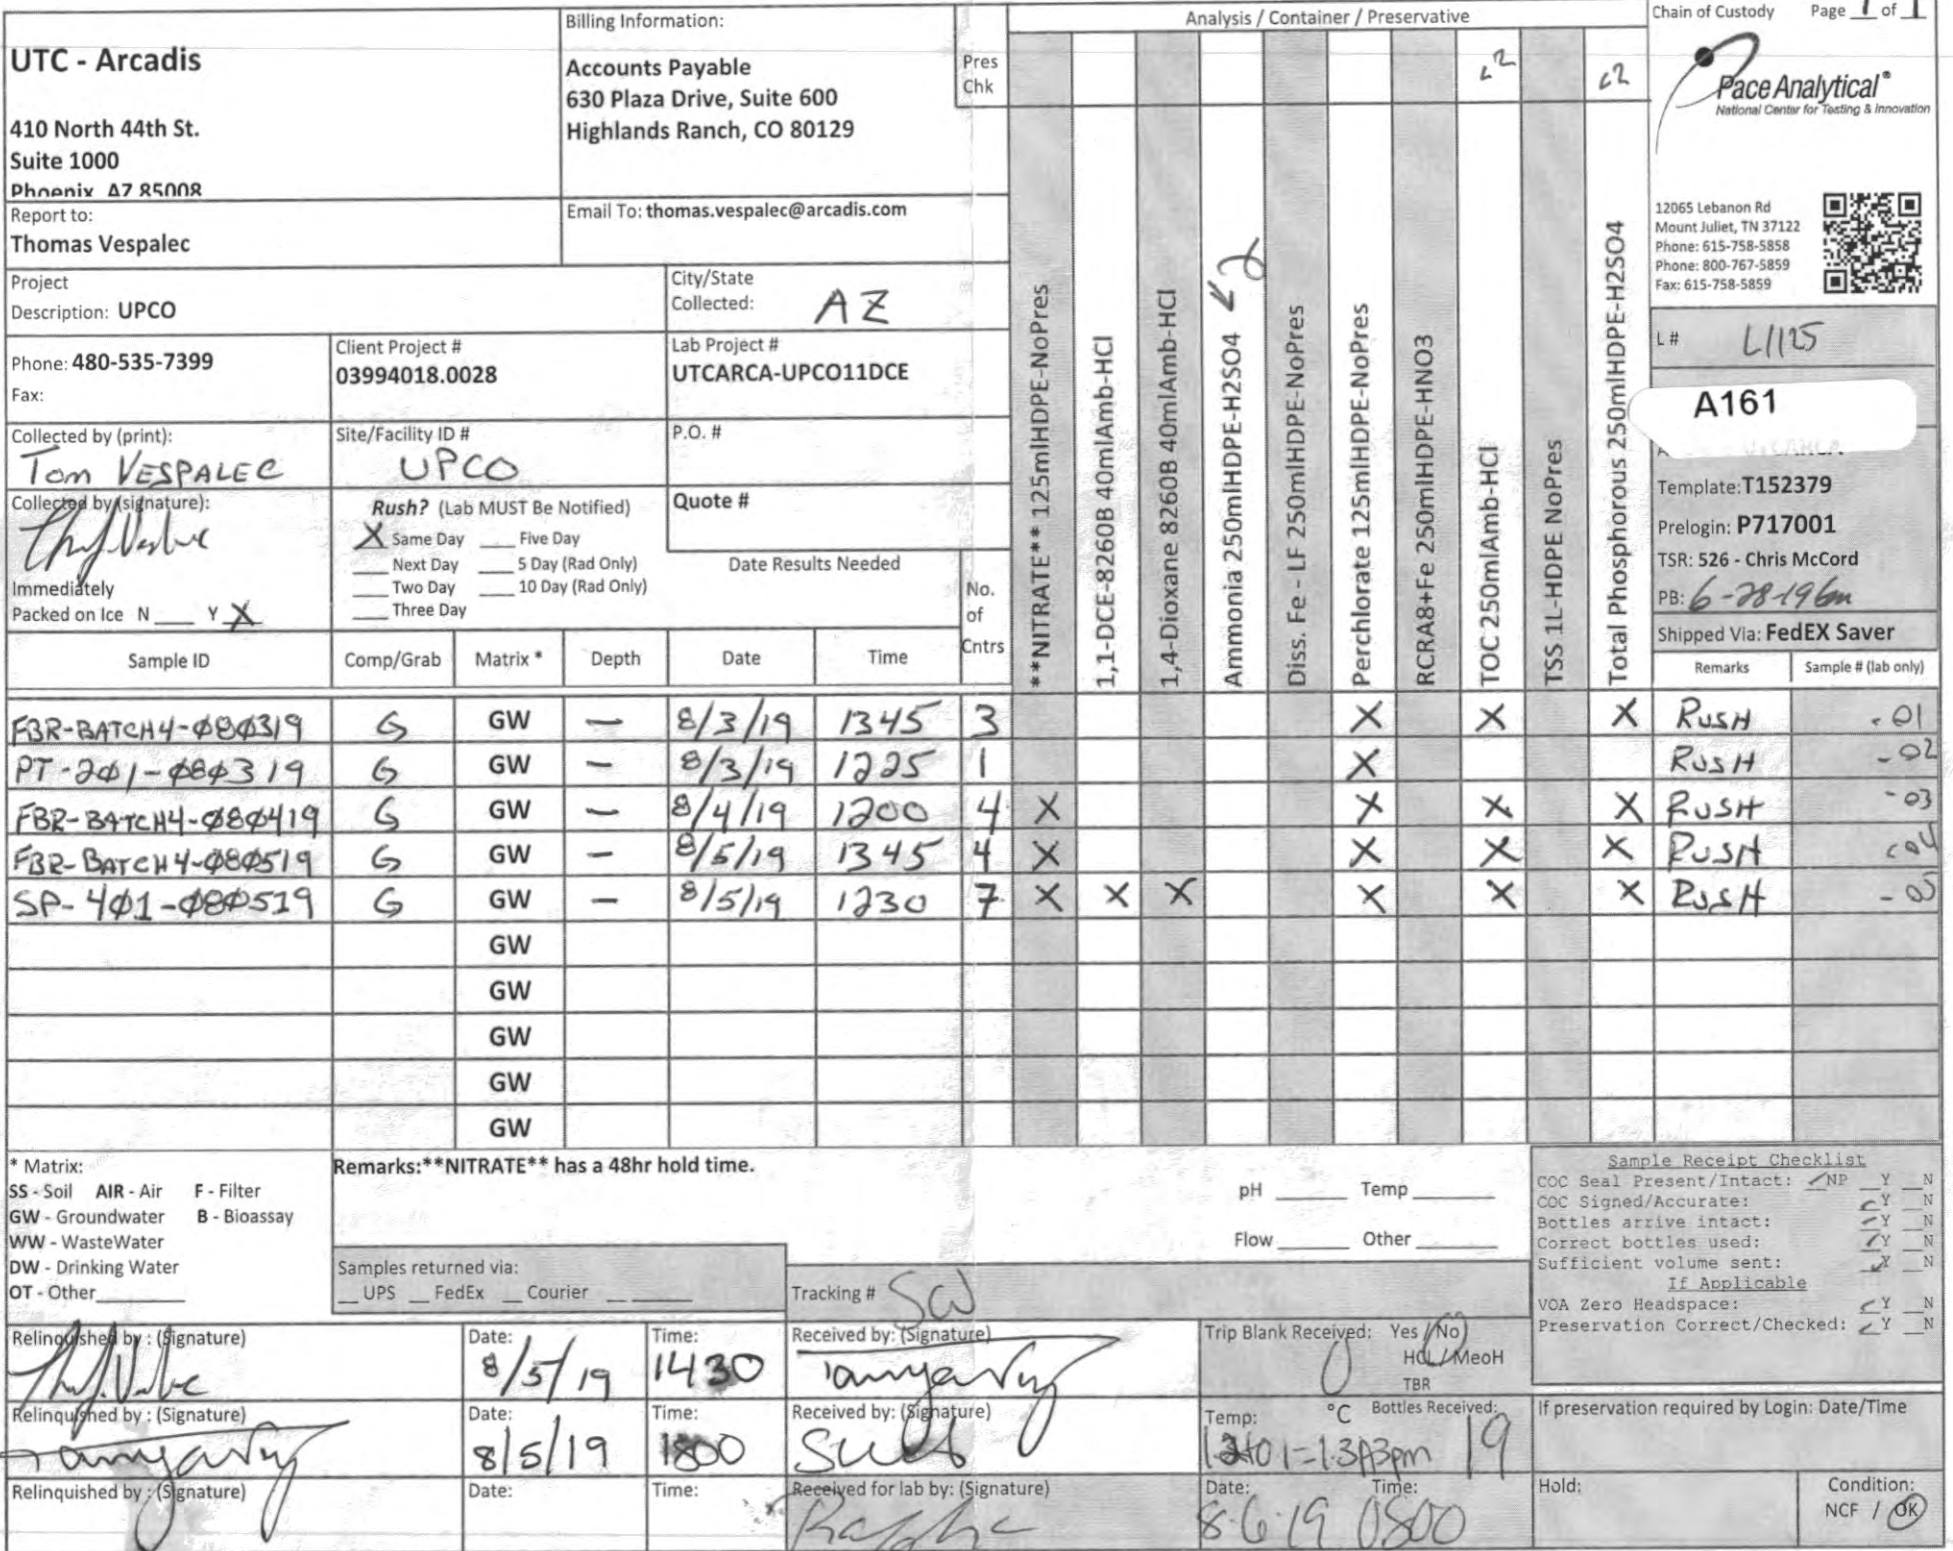 UTC - Arcadis
410 North 44th St.
Suite 1000
Phoenix AZ 85008
Billing Information:
Accounts Payable
630 Plaza Drive, Suite 600
Highlands Ranch, CO 80129
Pres
Chk
Analysis / Container / Preservative
Chain of Custody Page 1 of 1
Pace Analytical®
National Center for Testing & Innovation
12065 Lebanon Rd
Mount Juliet, TN 37122
Phone: 615-758-5858
Phone: 800-767-5859
Fax: 615-758-5859
Report to:
Thomas Vespalec
Email To: thomas.vespalec@arcadis.com
Project
Description: UPCO
City/State
Collected: AZ
Phone: 480-535-7399
Fax:
Client Project #
03994018.0028
Lab Project #
UTCARCA-UPCO11DCE
Collected by (print):
Tom VESPALEC
Site/Facility ID #
UPCO
P.O. #
Collected by (signature):
Immediately
Packed on Ice N ___ Y X
Rush? (Lab MUST Be Notified)
X Same Day ___ Five Day
___ Next Day ___ 5 Day (Rad Only)
___ Two Day ___ 10 Day (Rad Only)
___ Three Day
Quote #
Date Results Needed
No.
of
Cntrs
**NITRATE** 125mlHDPE-NoPres
1,1-DCE-8260B 40mlAmb-HCl
1,4-Dioxane 8260B 40mlAmb-HCl
Ammonia 250mlHDPE-H2SO4
Diss. Fe - LF 250mlHDPE-NoPres
Perchlorate 125mlHDPE-NoPres
RCRA8+Fe 250mlHDPE-HNO3
TOC 250mlAmb-HCl <2
TSS 1L-HDPE NoPres
Total Phosphorous 250mlHDPE-H2SO4 <2
L # L1125
A161
Template:T152379
Prelogin: P717001
TSR: 526 - Chris McCord
PB: 6-28-19
Shipped Via: FedEX Saver
Sample ID Comp/Grab Matrix * Depth Date Time Remarks Sample # (lab only)
FBR-BATCH4-080319 G GW — 8/3/19 1345 3 X X X RUSH -01
PT-201-080319 G GW — 8/3/19 1225 1 X RUSH -02
FBR-BATCH4-080419 G GW — 8/4/19 1200 4 X X X X RUSH -03
FBR-BATCH4-080519 G GW — 8/5/19 1345 4 X X X X RUSH -04
SP-401-080519 G GW — 8/5/19 1230 7 X X X X X X RUSH -05
GW
GW
GW
GW
GW
* Matrix:
SS - Soil AIR - Air F - Filter
GW - Groundwater B - Bioassay
WW - WasteWater
DW - Drinking Water
OT - Other
Remarks:**NITRATE** has a 48hr hold time.
pH ___ Temp ___
Flow ___ Other ___
Samples returned via:
__ UPS __ FedEx __ Courier ___
Tracking #
Sample Receipt Checklist
COC Seal Present/Intact: NP Y N
COC Signed/Accurate: Y N
Bottles arrive intact: Y N
Correct bottles used: Y N
Sufficient volume sent: Y N
If Applicable
VOA Zero Headspace: Y N
Preservation Correct/Checked: Y N
Relinquished by : (Signature)
Date: 8/5/19
Time: 1430
Received by: (Signature)
Trip Blank Received: Yes / No
HCL / MeoH
TBR
Relinquished by : (Signature)
Date: 8/5/19
Time: 1800
Received by: (Signature)
Temp: °C Bottles Received: 19
If preservation required by Login: Date/Time
Relinquished by : (Signature)
Date:
Time:
Received for lab by: (Signature)
Date: 8-6-19 Time: 0800
Hold:
Condition:
NCF / OK